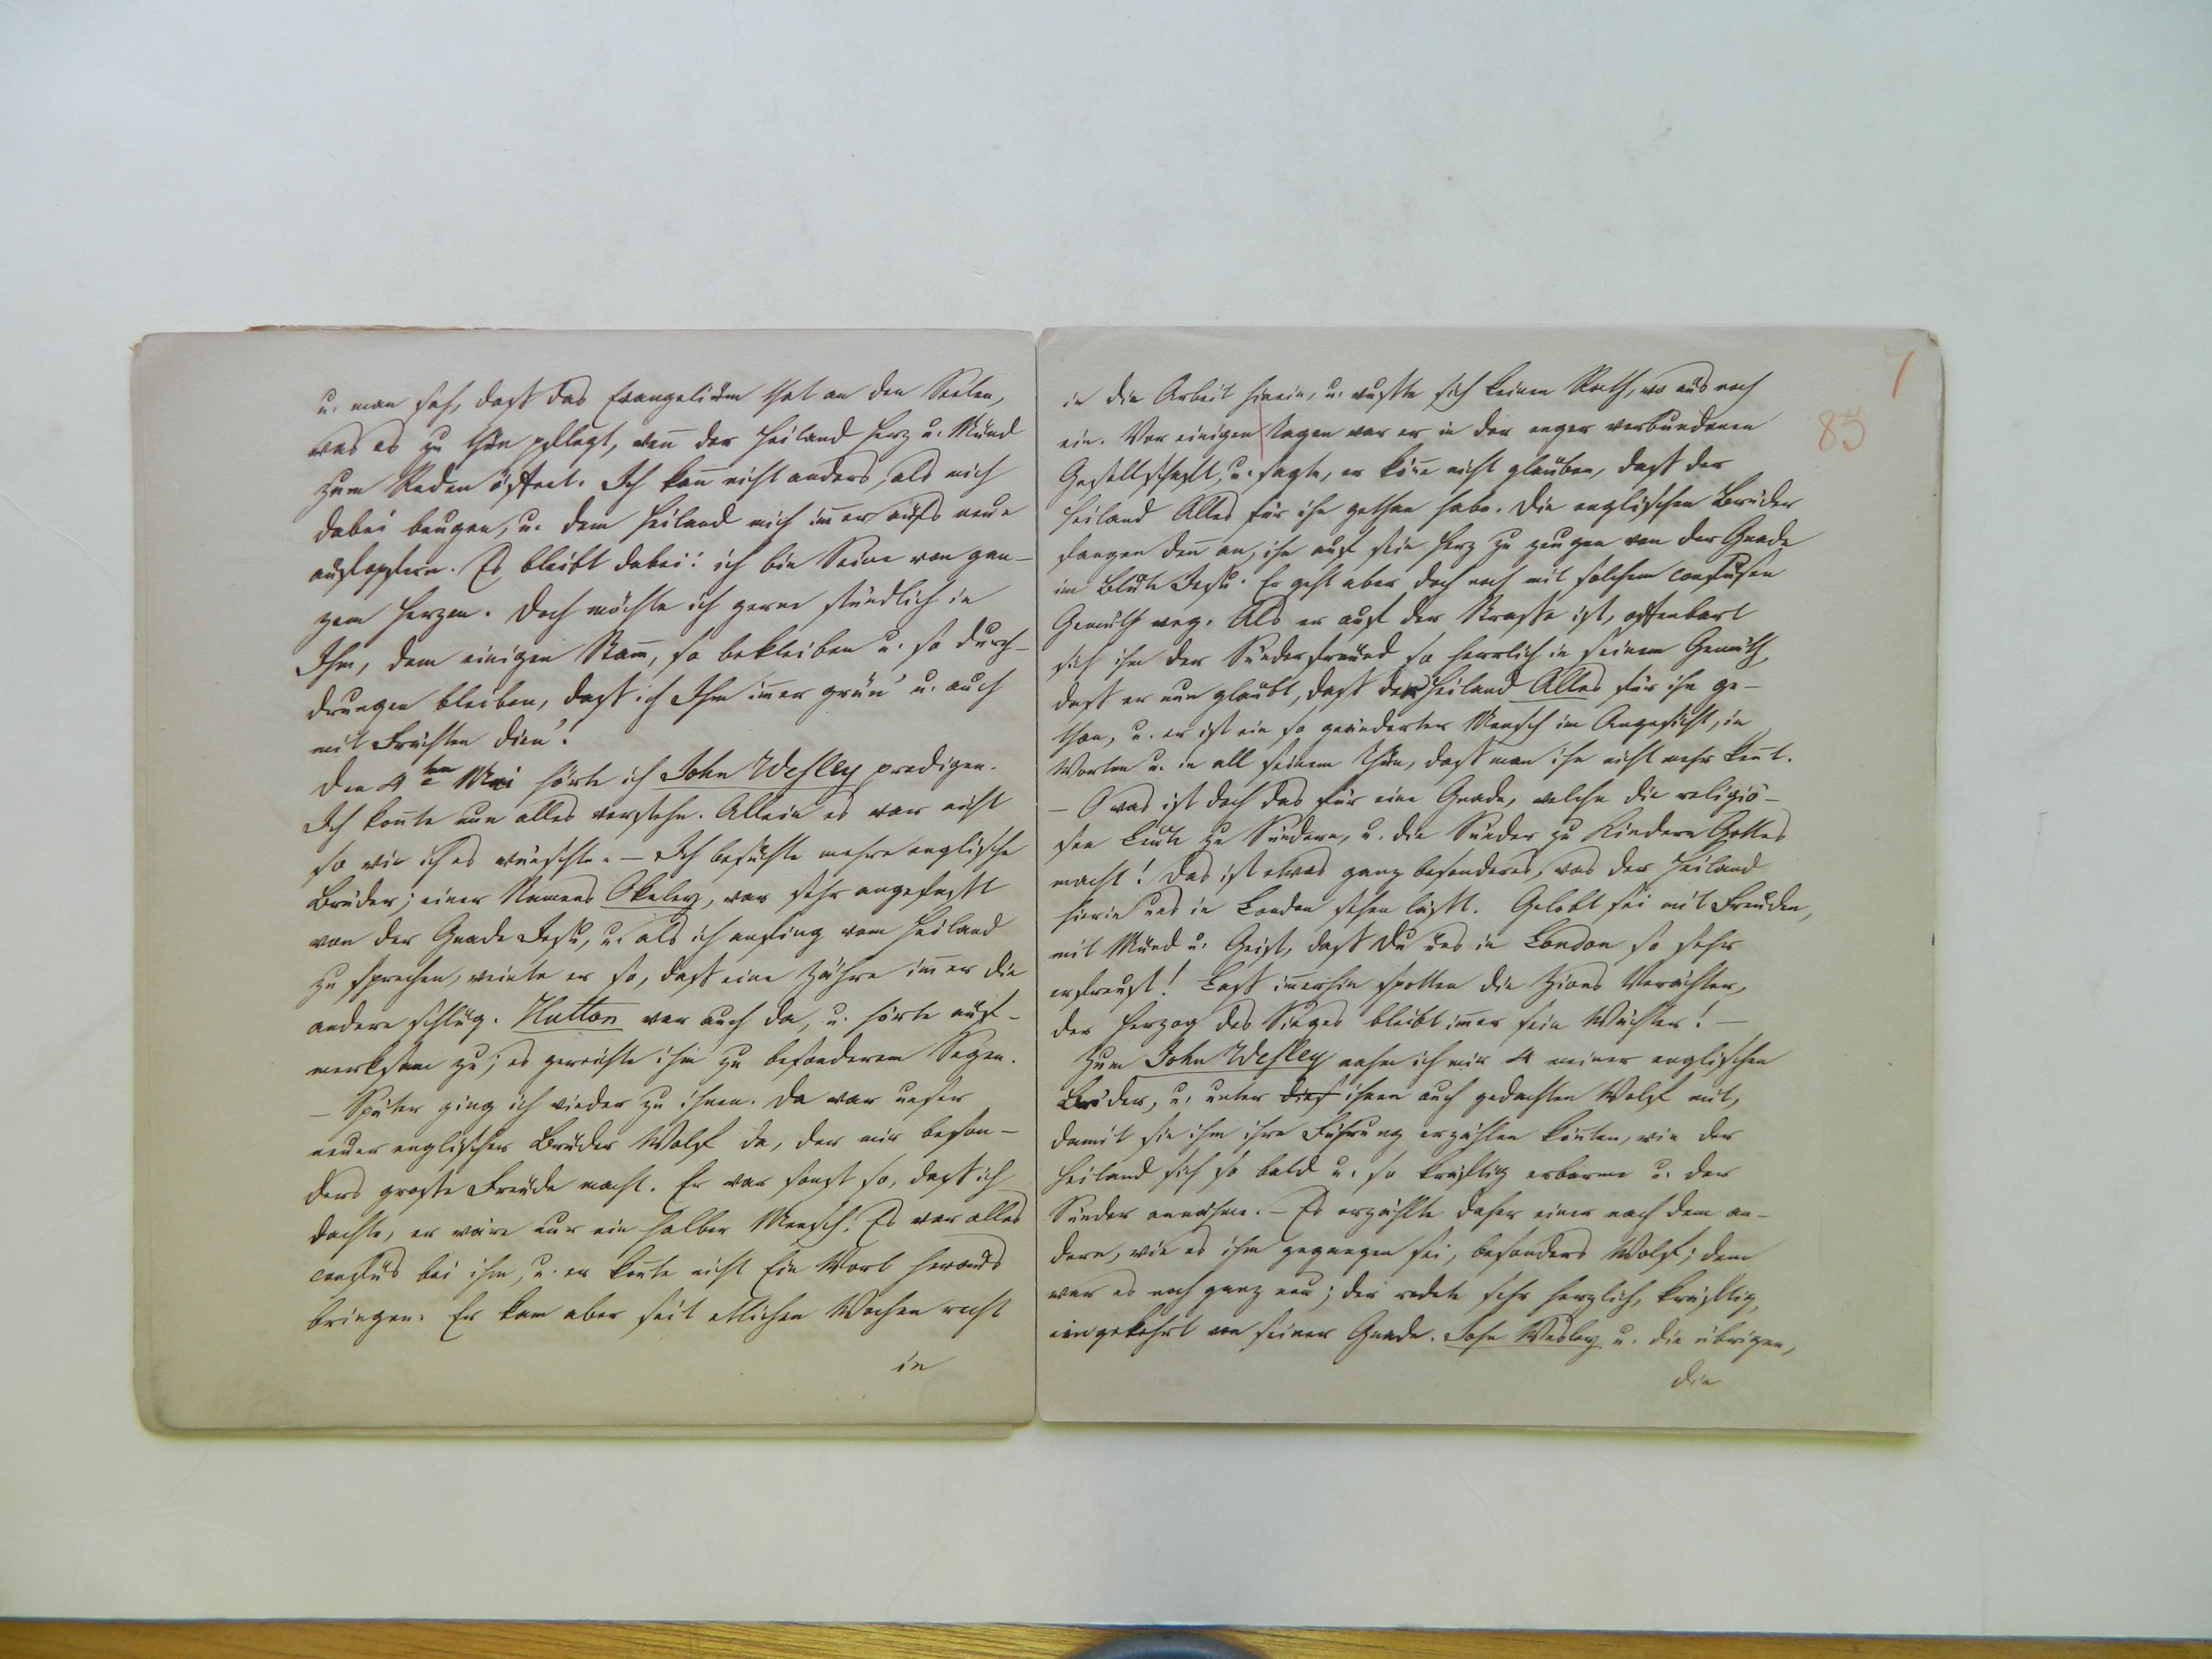 u. man sah, daß das Evangelium that an den Seelen,
was es zu thun pflegt, wen̄ der Heiland Herz u. Mund
zum Reden öffnet. Ich kan̄ nicht anders, als mich
dabei beugen, u. dem Heiland mich im̄er aufs neue
aufopfern. Es bleibt dabei: ich bin Seine von gan-
zem Herzen. Doch möchte ich gerne stündlich in
Ihm, dem einigen Stam̄, so bekleiben u. so durch-
drungen bleiben, daß ich Ihm im̄er grün' u. auch
mit Früchten dien'!
Den 4ten Mai hörte ich John Wesley predigen.
Ich kon̄te nun alles verstehn. Allein es war nicht
so wie ich es wünschte. – Ich besuchte mehre englische
Brüder; einer Namens Okeley, war sehr angefaßt
von der Gnade Jesu, u. als ich anfing vom Heiland
zu sprechen, weinte er so, daß eine Zähre im̄er die
andere schlug. Hutton war auch da, u. hörte auf-
merksam zu; es gereichte ihm zu besonderem Segen.
– Später ging ich wieder zu ihnen. Da war unser
neuer englischer Bruder Wolf da, der mir beson-
ders große Freude macht. Er war sonst so, daß ich
dachte, er wäre nur ein halber Mensch. Es war alles
confus bei ihm, u. er kon̄te nicht Ein Wort heraus
bringen. Er kam aber seit etlichen Wochen recht
in
7
85
in die Arbeit hinein, u. wußte sich keinen Rath, wo aus noch
ein. Vor einigen Tagen war er in der enger verbundenen
Gesellschaft, u. sagte, er kön̄e nicht glauben, daß der
Heiland Alles für ihn gethan habe. Die englischen Brüder
fangen den̄ an, ihm auf sein Herz zu zeugen von der Gnade
im Blute Jesu. Er geht aber doch noch mit solchem confusen
Gemüth weg. Als er auf der Straße ist, offenbart
sich ihm der Sünderfreund so herrlich in seinem Gemüth,
daß er nun glaubt, daß der Heiland Alles für ihn ge-
than, u. er ist ein so geänderter Mensch im Angesicht, in
Worten u. in all seinem Thun, daß man ihn nicht mehr ken̄t.
– O was ist doch das für eine Gnade, welche die religiö-
sen Leute zu Sündern, u. die Sünder zu Kindern Gottes
macht! Das ist etwas ganz besonderes, was der Heiland
hierin uns in London sehen läßt. Gelobt sei mit Freuden,
mit Mund u. Geist, daß du uns in London so sehr
erfreust! Laß im̄erhin spotten die Zions Verächter,
der Herzog des Sieges bleibt im̄er sein Wächter! –
Zum John Wesley nahm ich mir 4 meiner englischen
Brüder, u. unter dies ihnen auch gedachten Wolf mit,
damit sie ihm ihre Führung erzählen kön̄ten, wie der
Heiland sich so bald u. so kräftig erbarme u. der
Sünder annähme. – Es erzählte daher einer nach dem an-
dern, wie es ihm gegangen sei, besonders Wolf; dem
war es noch ganz neu; der redete sehr herzlich, kräftig,
eingekehrt von seiner Gnade. John Wesley u. die übrigen,
die